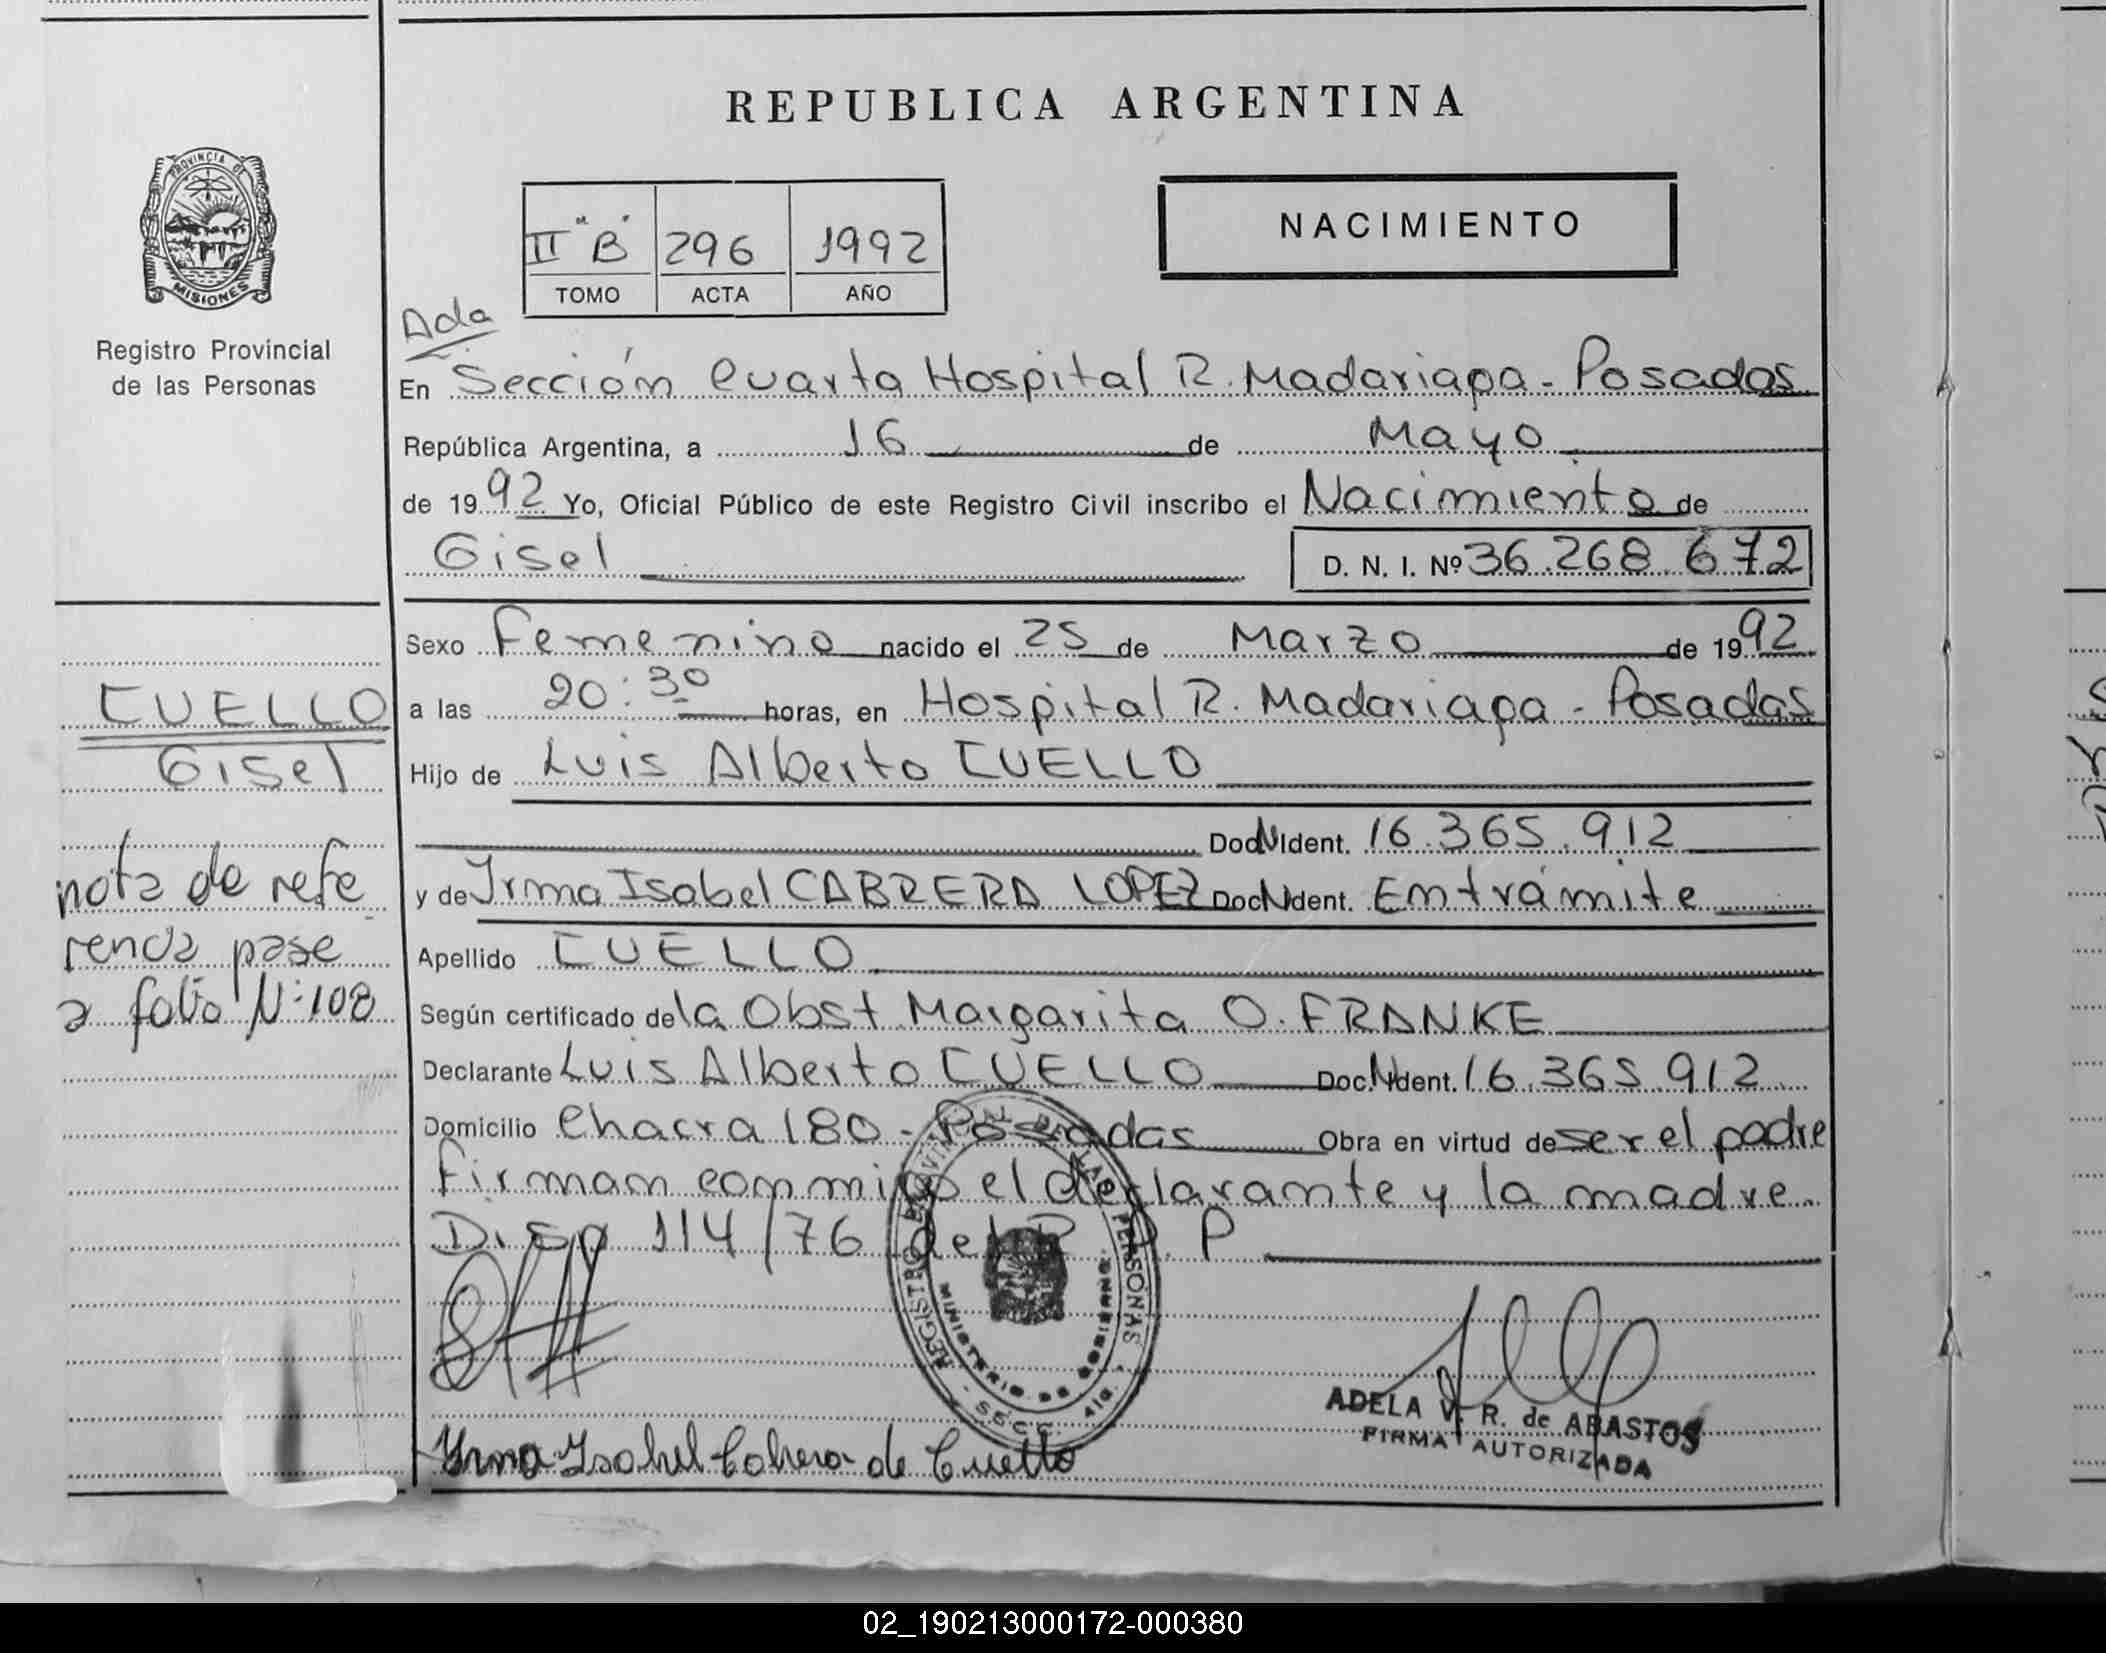 REPUBLICA ARGENTINA
PROVINCIA DE
MISIONES
Registro Provincial
de las Personas
II "B" 296 1992
TOMO ACTA AÑO
NACIMIENTO
Ada
En Sección Cuarta Hospital R. Madariaga - Posadas
República Argentina, a 16 de Mayo
de 1992 Yo, Oficial Público de este Registro Civil inscribo el Nacimiento de
Gisel D. N. I. Nº 36.268.672
Sexo Femenino nacido el 25 de Marzo de 1992
a las 20:30 horas, en Hospital R. Madariaga - Posadas
Hijo de Luis Alberto CUELLO
Doc N Ident. 16.365.912
y de Irma Isabel CABRERA LOPEZ Doc N Ident. En trámite
Apellido CUELLO
Según certificado de la Obst Margarita O. FRANKE
Declarante Luis Alberto CUELLO Doc. N Ident. 16.365.912
Domicilio Chacra 180 - Posadas Obra en virtud de ser el padre
Firman conmigo el declarante y la madre.
Disp 114/76 del R. P. P
CUELLO
Gisel
nota de refe
rencia pase
a folio Nº 108
REGISTRO PROVINCIAL DE LAS PERSONAS
MINISTERIO DE GOBIERNO
SECC. 4ta.
Irma Isabel Cabrera de Cuello
ADELA V. R. de ABASTOS
FIRMA AUTORIZADA
02_190213000172-000380